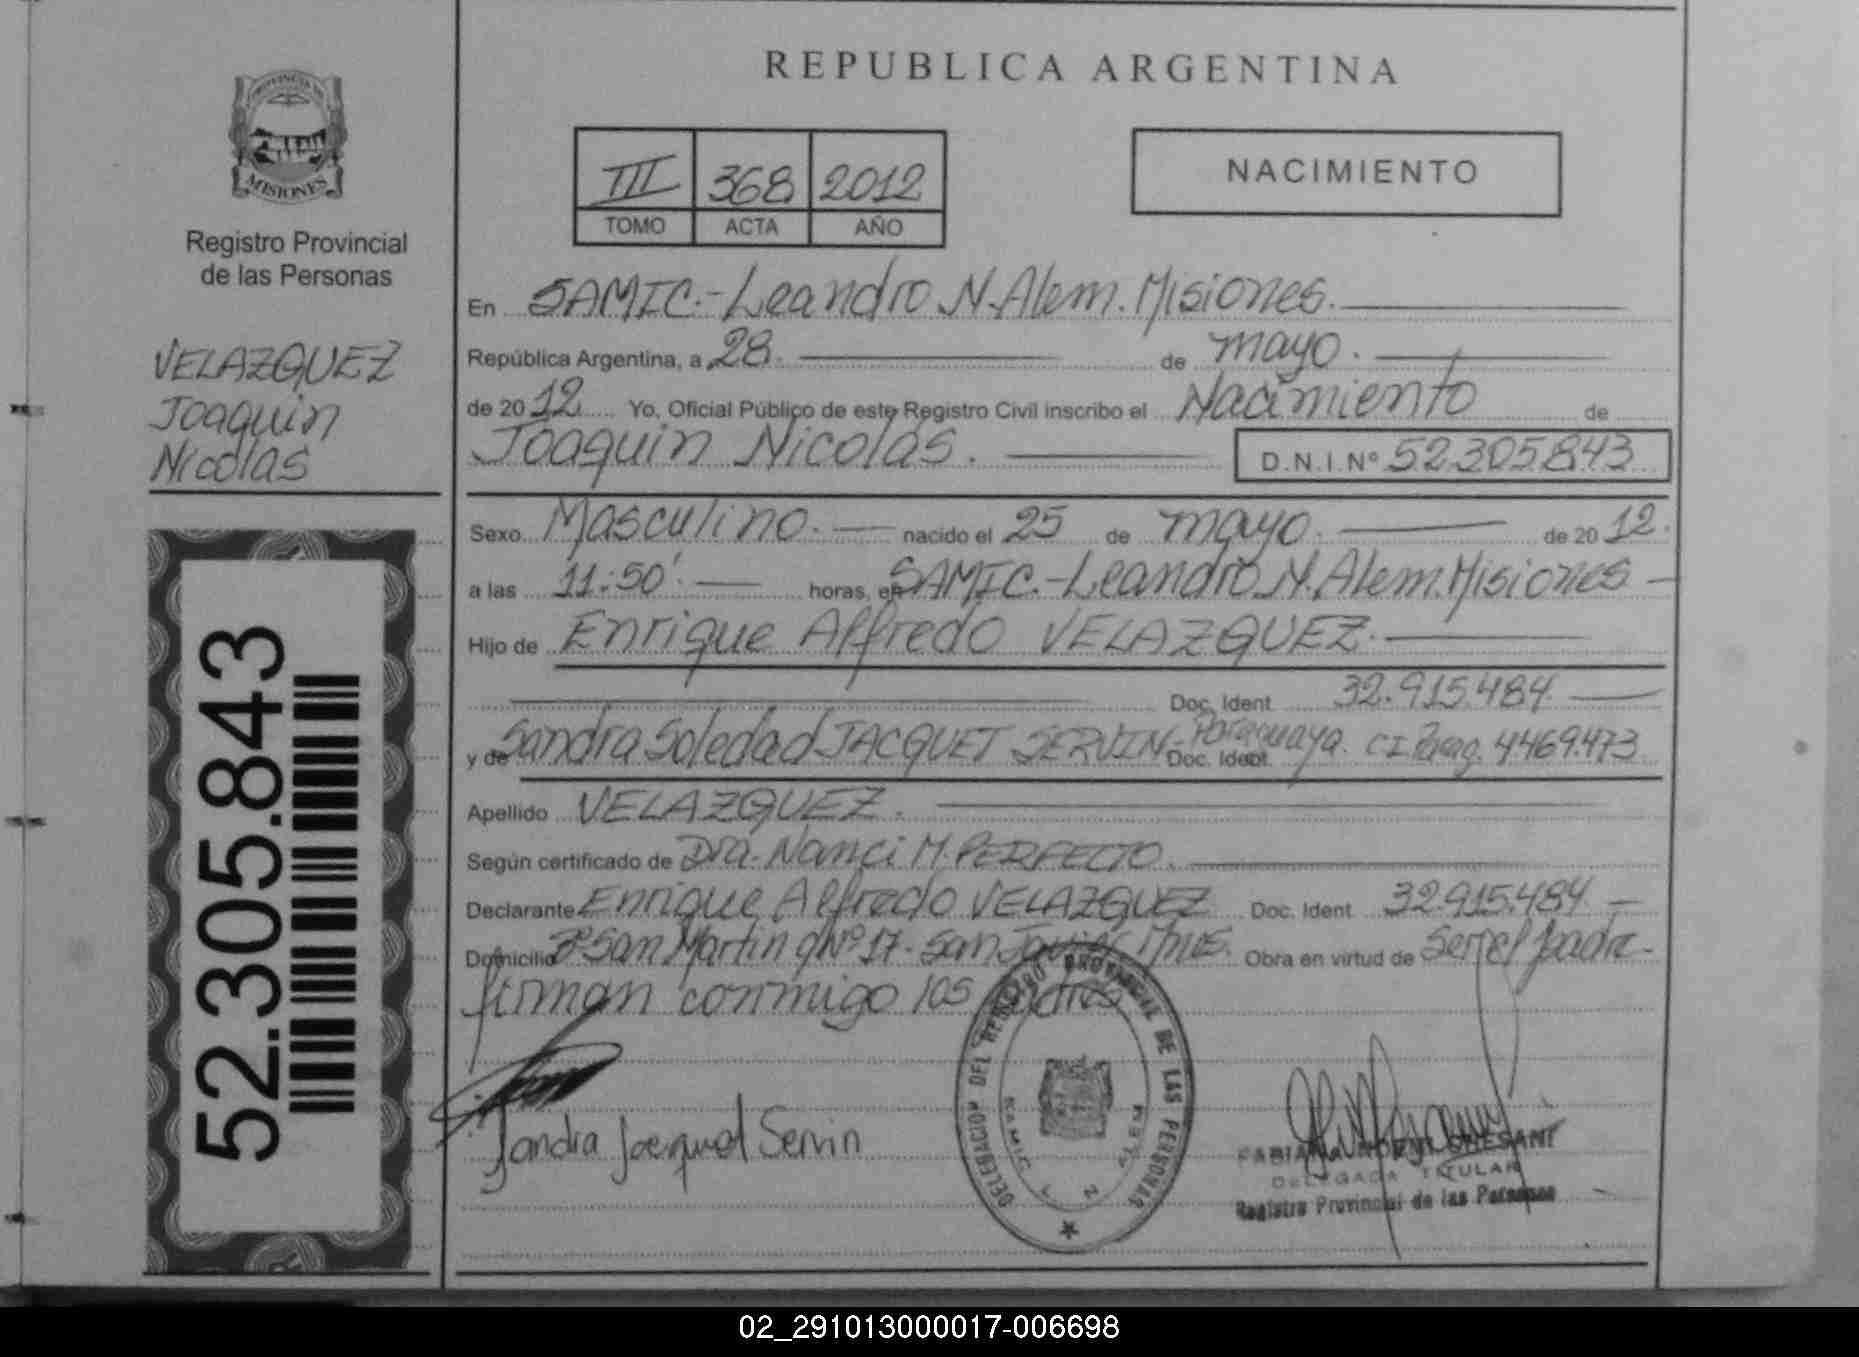 REPUBLICA ARGENTINA
PROVINCIA DE
MISIONES
Registro Provincial
de las Personas
III 368 2012
TOMO ACTA AÑO
NACIMIENTO
VELAZQUEZ
Joaquin
Nicolás
52.305.843
En SAMIC.-Leandro N. Alem. Misiones.
República Argentina, a 28. de mayo.
de 2012 Yo, Oficial Público de este Registro Civil inscribo el Nacimiento de
Joaquin Nicolás. D.N.I.Nº 52.305.843
Sexo Masculino. nacido el 25 de mayo. de 2012.
a las 11:50'. horas, en SAMIC.-Leandro N. Alem. Misiones
Hijo de Enrique Alfredo VELAZQUEZ.
Doc. Ident 32.915.484.
y de Sandra Soledad JACQUET SERVIN- Paraguaya. Doc. Ident. CI Parag. 4469.473
Apellido VELAZQUEZ.
Según certificado de Dra. Nanci M. PERFECTO.
Declarante Enrique Alfredo VELAZQUEZ Doc. Ident 32.915.484.
Domicilio Bº San Martin Nº 17. San Javier Obra en virtud de Ser el padre-
firman conmigo los padres
Sandra Jacquet Servin
DELEGACION DEL REGISTRO PROVINCIAL DE LAS PERSONAS
SAMIC L N ALEM
FABIANA
DELEGADA TITULAR
Registro Provincial de las Personas
02_291013000017-006698